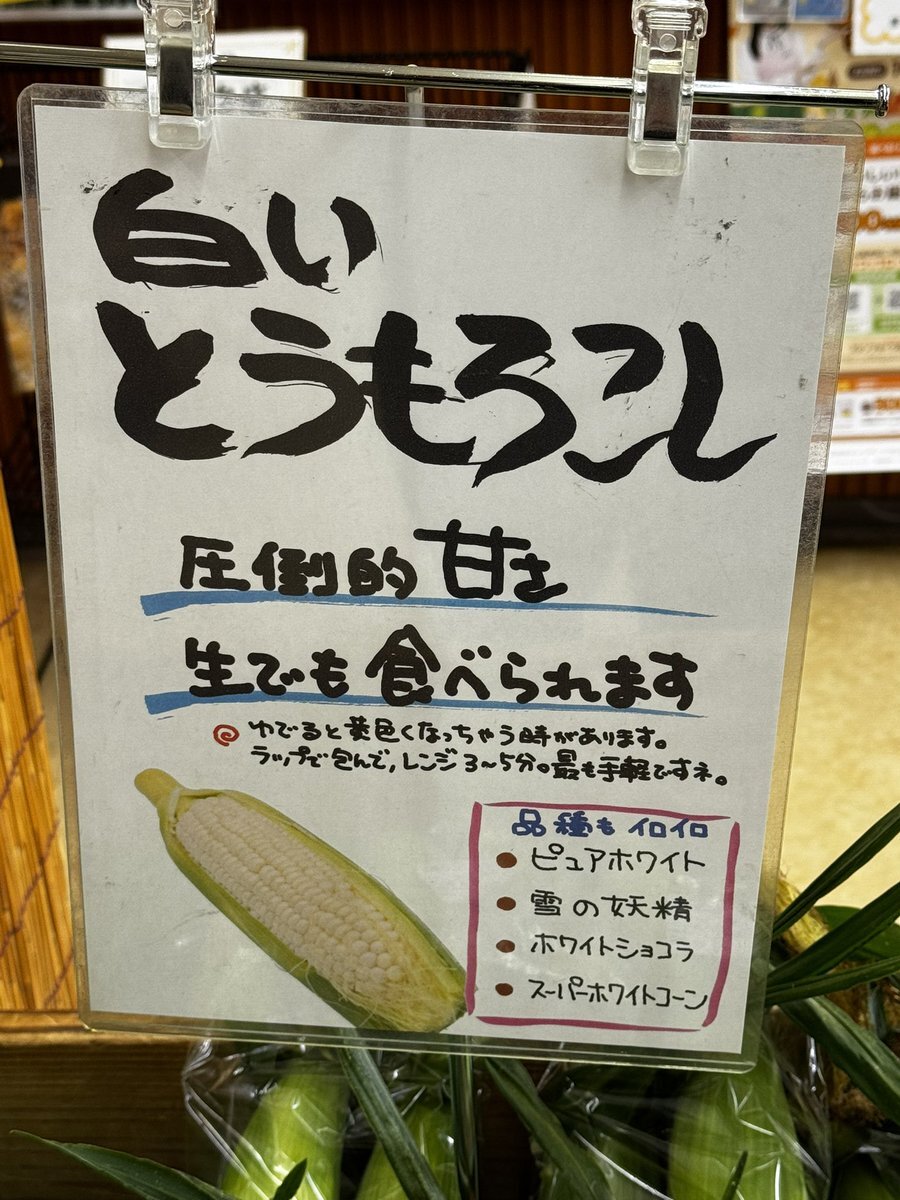 白い
とうもろこし
圧倒的甘さ
生でも食べられます
ゆでると黄色くなっちゃう時があります。
ラップで包んで,レンジ3~5分。最も手軽ですネ。
品種もイロイロ
● ピュアホワイト
● 雪の妖精
● ホワイトショコラ
● スーパーホワイトコーン